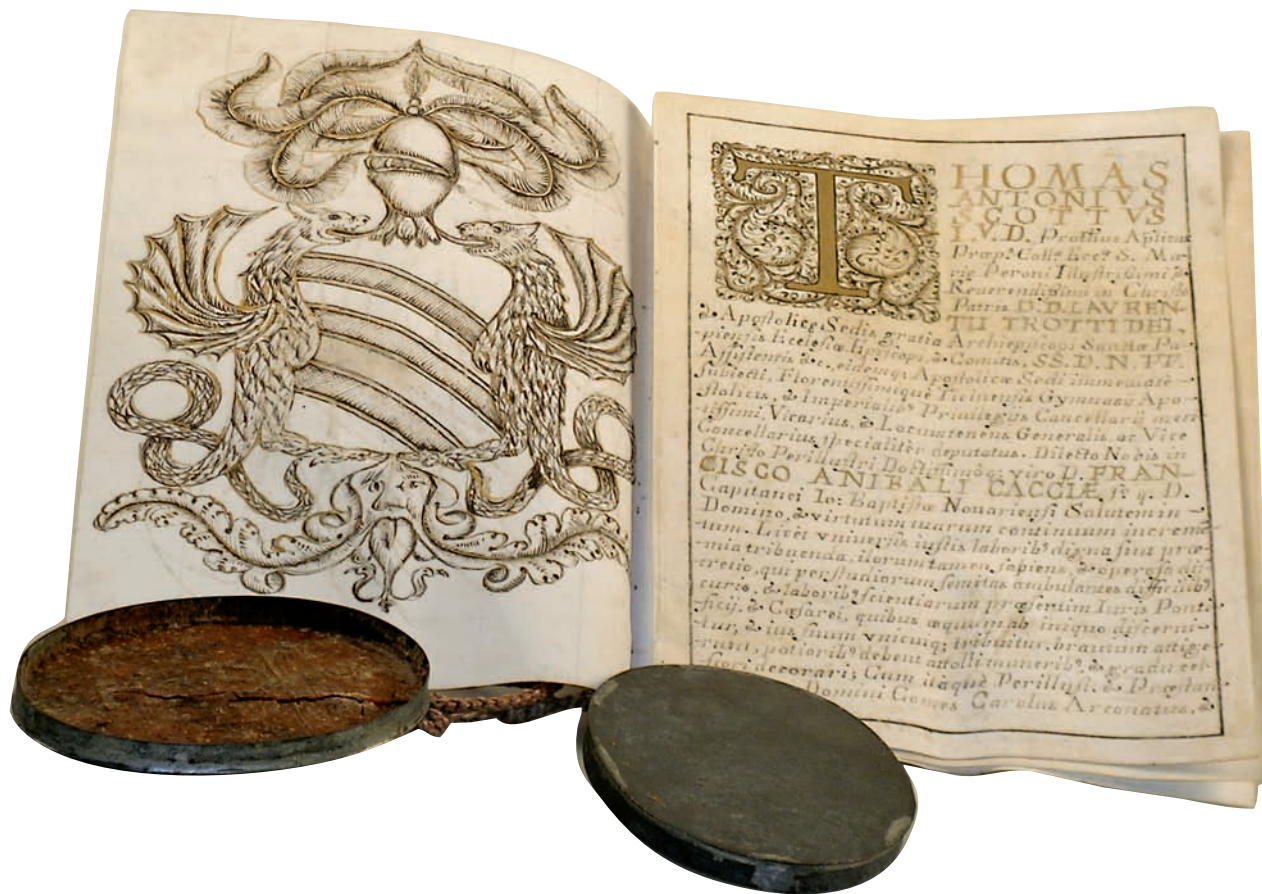 THOMAS
ANTONIVS
SCOTTVS
I.V.D. Protħus Apl̃icus
Præp.s Coll.æ Ecc.æ S. Ma-
riæ Peroni Illustrissimi &
Reuerendissimi in Christo
Patris D.D. LAVREN-
TII TROTTI DEI,
& Apostolicę Sedis gratia Archiepiscopi Sanctæ Pa-
piensis Ecclesiæ Episcopi, & Comitis, SS. D. N. PP.
Assistentis &c. eidemq; Apostolicæ Sedi immediatè
subiecti, Florentissimique Ticinensis Gymnasij Apo-
stolicis, & Imperialib9 Priuilegijs Cancellarij meri-
tissimi, Vicarius, & Locumtenens Generalis, ac Vice
Cancellarius specialitèr deputatus. Dilecto Nobis in
Christo Perillustri Doctissimòq; viro D. FRAN-
CISCO ANIBALI CACCIÆ, f.º q. D.
Capitanei Io: Baptistæ Nouariensi Salutem in
Domino, & virtutum tuarum continuum increm-
tum. Licet vniuersis iustis laborib9 digna sint præ-
mia tribuenda, illorum tamen sapiens, & operosa di-
cretio, qui per studiorum semitas ambulantes difficilib9
curis, & laborib9 scientiarum præsertim Iuris Ponti-
ficij, & Cæsarei, quibus æquum ab iniquo discerni-
tur, & ius suum vnicuiq; tribuitur, brauium attige-
runt, potiorib9 debent attolli munerib9, & gradu cel-
siori decorari; Cum itaquè Perillust. & Præstan
Domini Comes Carolus Arconatus, &